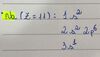 Na (Z = 11) : 1s²
2s² 2p⁶
3s¹